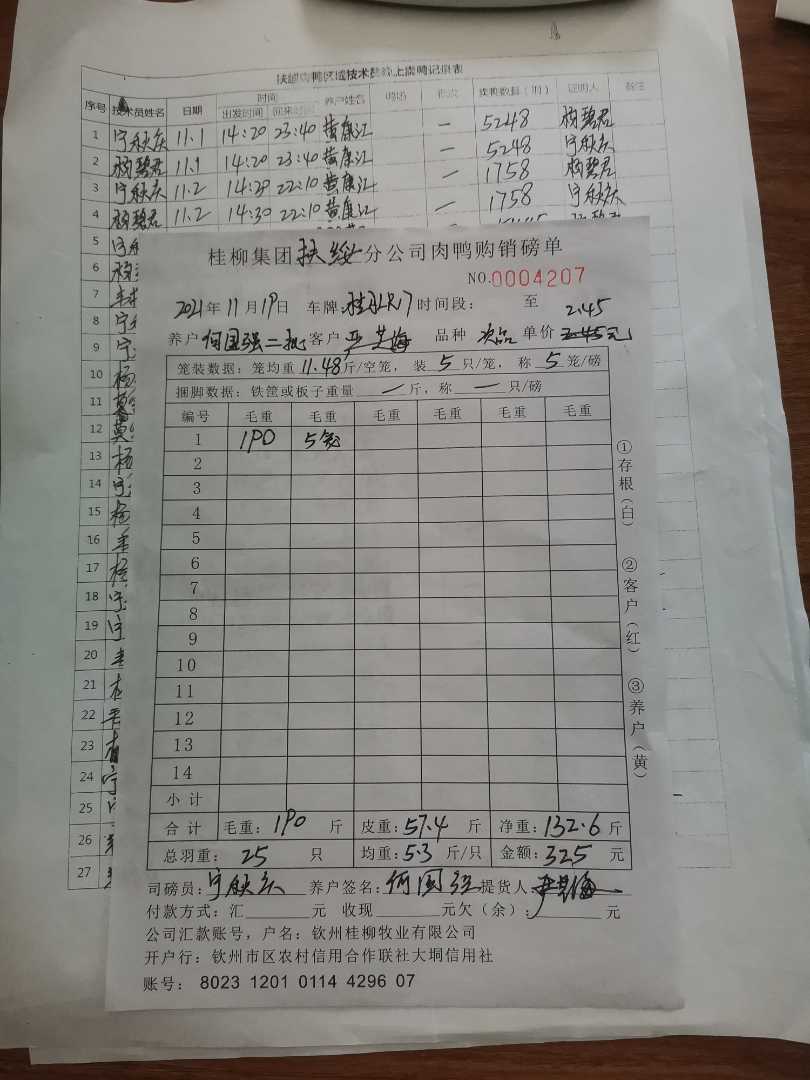 扶绥肉鸭区域技术员线上卖鸭记录表
序号 技术员姓名 日期 时间 养户姓名 批次 卖鸭数量(只) 证明人 备注
出发时间 回来时间
1 宁献庆 11.1 14:20 23:40 黄康江 一 5248 杨碧君
2 杨碧君 11.1 14:20 23:40 黄康江 一 5248 宁献庆
3 宁献庆 11.2 14:20 22:10 黄康江 一 1758 杨碧君
4 杨碧君 11.2 14:30 22:10 黄康江 一 1758 宁献庆
5
6
7
8
9
10
11
12
13
14
15
16
17
18
19
20
21
22
23
24
25
26
27
桂柳集团扶绥分公司肉鸭购销磅单
NO.0004207
2021年11月19日 车牌: 时间段: 至
2.45
养户何国强二批 客户 品种 次品 单价 2.45元
笼装数据:笼均重11.48斤/空笼,装5只/笼,称5笼/磅
捆脚数据:铁筐或板子重量一斤,称一只/磅
编号 毛重 毛重 毛重 毛重 毛重 毛重
1 190 5笼
2
3
4
5
6
7
8
9
10
11
12
13
14
小计
合计 毛重:190斤 皮重:57.4斤 净重:132.6斤
总羽重:25只 均重:5.3斤/只 金额:325元
司磅员:宁献庆 养户签名:何国强 提货人:
付款方式:汇 元 收现 元欠(余): 元
公司汇款账号,户名:钦州桂柳牧业有限公司
开户行:钦州市区农村信用合作联社大垌信用社
账号: 8023 1201 0114 4296 07
①存根(白)
②客户(红)
③养户(黄)